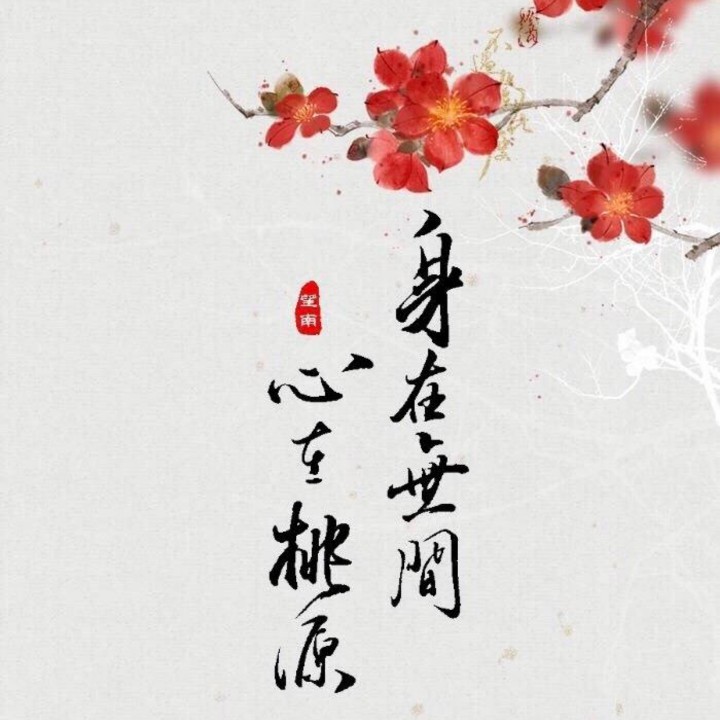 身在無間
心在桃源
望南